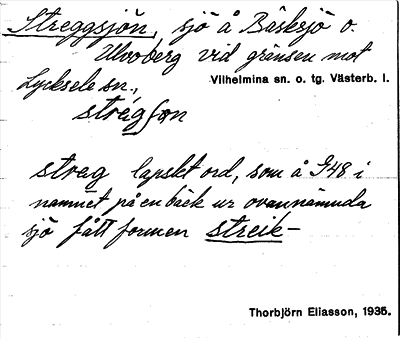 Streggsjön, sjö å Bäsksjö o.
Ulvoberg vid gränsen mot
Lycksele sn.,
Vilhelmina sn. o. tg. Västerb. l.
streg lapskt ord, som å G48 i
namnet på en bäck ur ovannämnda
sjö fått formen streik-
Thorbjörn Eliasson, 1935.